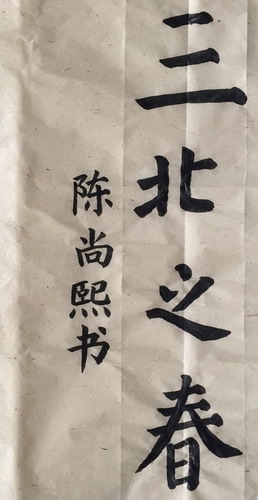 三北之春
陈尚熙书